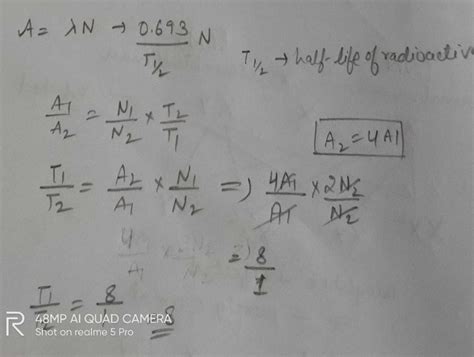 A = λN → 0.693/T1/2 N
T1/2 → half-life of radioactiv
A1/A2 = N1/N2 × T2/T1
A2 = 4A1
T1/T2 = A2/A1 × N1/N2 =) 4A1/A1 × 2N2/N2
=) 8/1
T1/T2 = 8/1 8
48MP AI QUAD CAMERA
Shot on realme 5 Pro